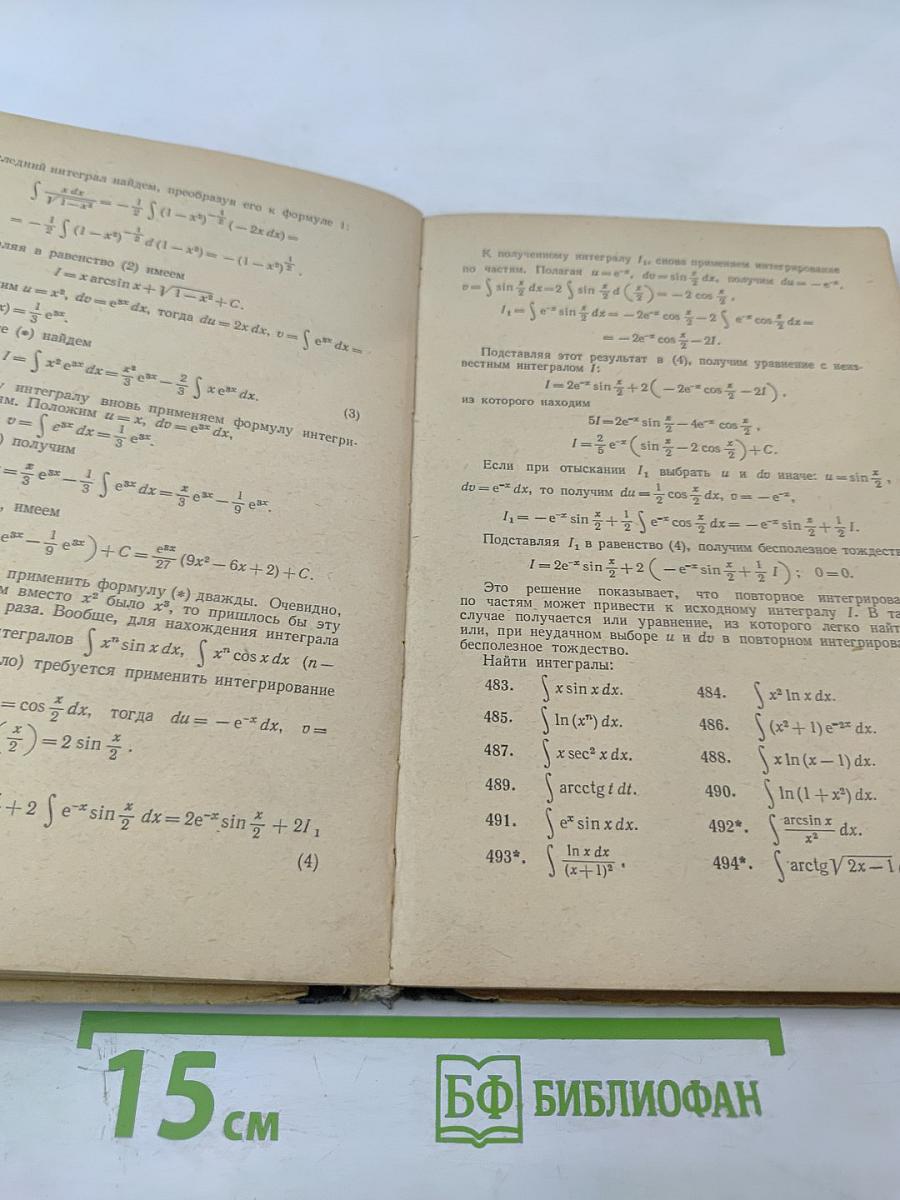 следний интеграл найдем, преобразуя его к формуле 1:
∫ x dx / √(1 — x²) = — 1/2 ∫ (1 — x²)^(—1/2) (— 2x dx) =
= — 1/2 ∫ (1 — x²)^(—1/2) d (1 — x²) = — (1 — x²)^(1/2).
ляя в равенство (2) имеем
I = x arcsin x + √(1 — x²) + C.
им u = x², dv = e^(3x) dx, тогда du = 2x dx, v = ∫ e^(3x) dx =
x) = 1/3 e^(3x).
е (*) найдем
I = ∫ x² e^(3x) dx = x²/3 e^(3x) — 2/3 ∫ x e^(3x) dx. (3)
у интегралу вновь применяем формулу интегри-
ям. Положим u = x, dv = e^(3x) dx,
v = ∫ e^(3x) dx = 1/3 e^(3x).
) получим
= x/3 e^(3x) — 1/3 ∫ e^(3x) dx = x/3 e^(3x) — 1/9 e^(3x).
, имеем
e^(3x) — 1/9 e^(3x)) + C = e^(3x)/27 (9x² — 6x + 2) + C.
применить формулу (*) дважды. Очевидно,
м вместо x² было x³, то пришлось бы эту
раза. Вообще, для нахождения интеграла
тегралов ∫ xⁿ sin x dx, ∫ xⁿ cos x dx (n —
ло) требуется применить интегрирование
= cos x/2 dx, тогда du = — e^(—x) dx, v =
(x/2) = 2 sin x/2.
+ 2 ∫ e^(—x) sin x/2 dx = 2e^(—x) sin x/2 + 2I₁
(4)
К полученному интегралу I₁, снова применяем интегрирование
по частям. Полагая u = e^(—x), dv = sin x/2 dx, получим du = — e^(—x),
v = ∫ sin x/2 dx = 2 ∫ sin x/2 d (x/2) = — 2 cos x/2,
I₁ = ∫ e^(—x) sin x/2 dx = — 2e^(—x) cos x/2 — 2 ∫ e^(—x) cos x/2 dx =
= — 2e^(—x) cos x/2 — 2I.
Подставляя этот результат в (4), получим уравнение с неиз-
вестным интегралом I:
I = 2e^(—x) sin x/2 + 2 (— 2e^(—x) cos x/2 — 2I),
из которого находим
5I = 2e^(—x) sin x/2 — 4e^(—x) cos x/2,
I = 2/5 e^(—x) (sin x/2 — 2 cos x/2) + C.
Если при отыскании I₁ выбрать u и dv иначе: u = sin x/2,
dv = e^(—x) dx, то получим du = 1/2 cos x/2 dx, v = — e^(—x),
I₁ = — e^(—x) sin x/2 + 1/2 ∫ e^(—x) cos x/2 dx = — e^(—x) sin x/2 + 1/2 I.
Подставляя I₁ в равенство (4), получим бесполезное тождеств
I = 2e^(—x) sin x/2 + 2 (— e^(—x) sin x/2 + 1/2 I); 0 = 0.
Это решение показывает, что повторное интегрирова
по частям может привести к исходному интегралу I. В та
случае получается или уравнение, из которого легко найт
или, при неудачном выборе u и dv в повторном интегрирова
бесполезное тождество.
Найти интегралы:
483. ∫ x sin x dx. 484. ∫ x² ln x dx.
485. ∫ ln (xⁿ) dx. 486. ∫ (x² + 1) e^(—2x) dx.
487. ∫ x sec² x dx. 488. ∫ x ln (x — 1) dx.
489. ∫ arcctg t dt. 490. ∫ ln (1 + x²) dx.
491. ∫ e^x sin x dx. 492*. ∫ arcsin x / x² dx.
493*. ∫ ln x dx / (x + 1)². 494*. ∫ arctg √(2x — 1)
15 см
БФ БИБЛИОФАН